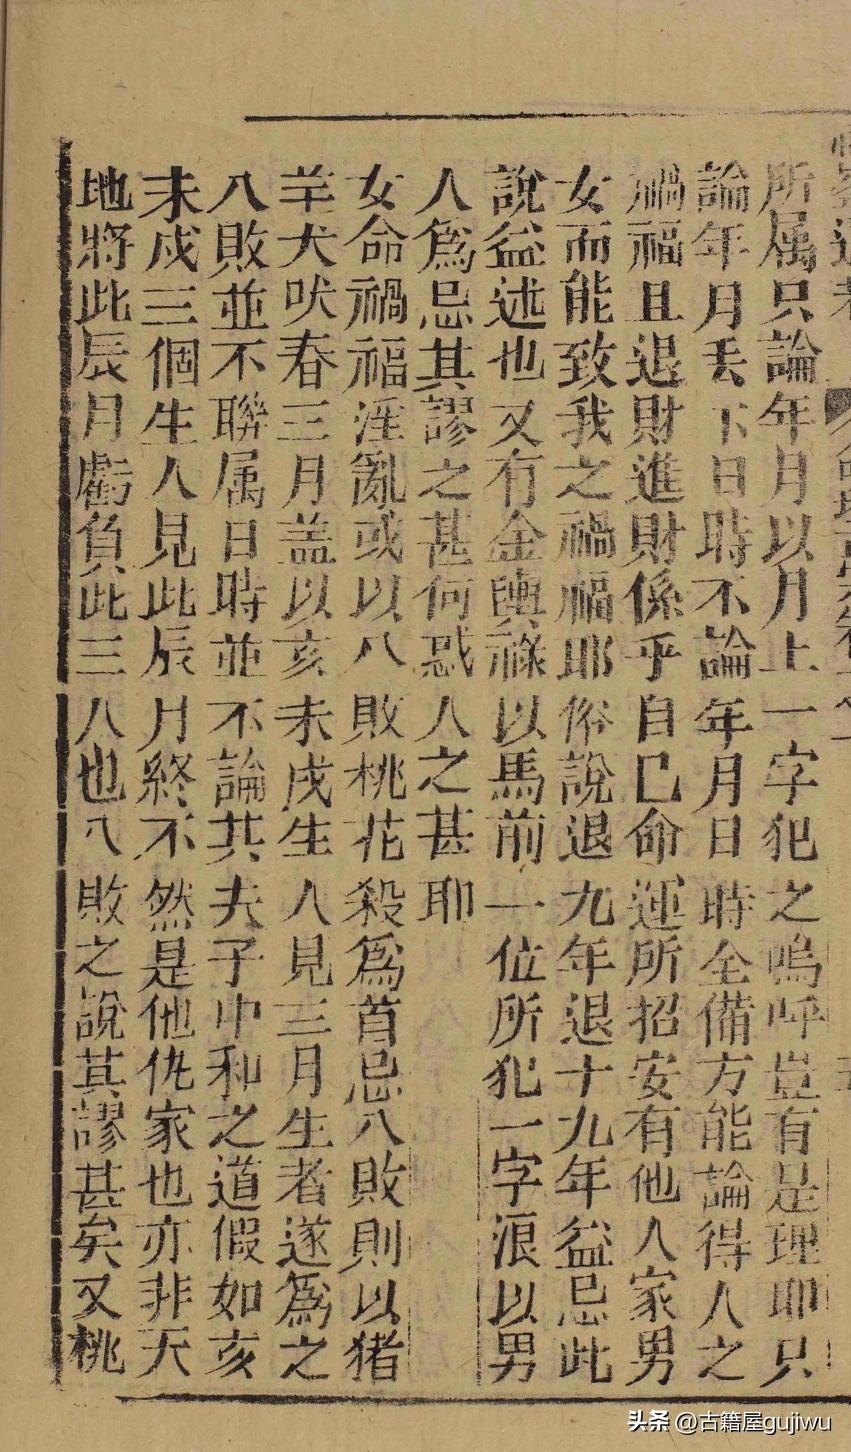 所属只論年月以月上一字犯之嗚呼豈有是理耶只
論年月丢下日時不論年月日時全備方能論得人之
禍福且退財進財係乎自巳命運所招安有他人家男
女而能致我之禍福耶俗說退九年退十九年益忌此
說益述也又有金輿祿以馬前一位所犯一字浪以男
人爲忌其謬之甚何惑人之甚耶
女命禍福淫亂或以八敗桃花殺爲首忌八敗則以猪
羊犬吠春三月盖以亥未戌生人見三月生者遂爲之
八敗並不聯属日時並不論其夫子中和之道假如亥
未戌三個生人見此辰月終不然是他仇家也亦非天
地將此辰月虧負此三人也八敗之說其謬甚矣又桃
头条 @古籍屋gujiwu